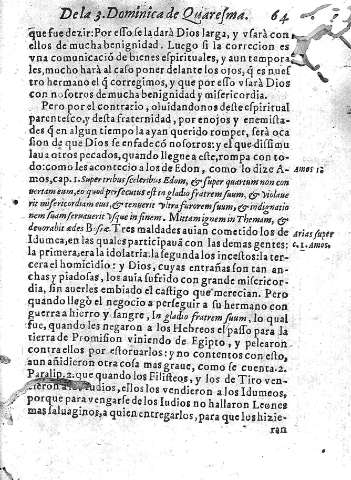 De la 3. Dominica de Quaresma. 64
que fue dezir: Por esso se la darà Dios larga, y vsarà con
ellos de mucha benignidad. Luego si la correcion es
vna comunicació de bienes espirituales, y aun tempora
les, mucho hará al caso poner delante los ojos, q̃ es nues
tro hermano el q̃ corregimos, y que por esso vsarà Dios
con nosotros de mucha benignidad y misericordia.
Pero por el contrario, oluidandonos deste espiritual
parentesco, y desta fraternidad, por enojos y enemista-
des q̃ en algun tiempo la ayan querido romper, serà oca
sion de que Dios se enfade có nosotros: y el que dissimu
laua otros pecados, quando llegue a este, rompa con to-
do: como les acontecio a los de Edon, como lo dize A- Amos 1
mos, cap. 1. Super tribus sceleribus Edom, & super quatuor non con
uertam eum, eo quod persecutus est in gladio fratrem suum, & violaue
rit misericordiam eius, & tenuerit vltra furorem suum, & indignatio
nem suam seruauerit vsque in finem. Mittam ignem in Themam, &
deuorabit ædes Bosræ. Tres maldades auian cometido los de Arias super
Idumea, en las quales participauã con las demas gentes: c. 1. Amos.
la primera, era la idolatria: la segunda los incestos: la ter
cera el homicidio: y Dios, cuyas entrañas son tan an-
chas y piadosas, los auia sufrido con grande misericor-
dia, sin auerles embiado el castigo que merecian. Pero
quando llegò el negocio a perseguir a su hermano con
guerra a hierro y sangre, In gladio fratrem suum, lo qual
fue, quando les negaron a los Hebreos el passo para la
tierra de Promission viniendo de Egipto, y pelearon
contra ellos por estoruarlos: y no contentos con esto,
aun añidieron otra cosa mas graue, como se cuenta 2.
Paralip. 2. que quando los Filisteos, y los de Tiro ven-
cieron a los Iudios, ellos los vendieron a los Idumeos,
porque para vengarse de los Iudios no hallaron Leones
mas saluaginos, a quien entregarlos, para que los hizie-
ran